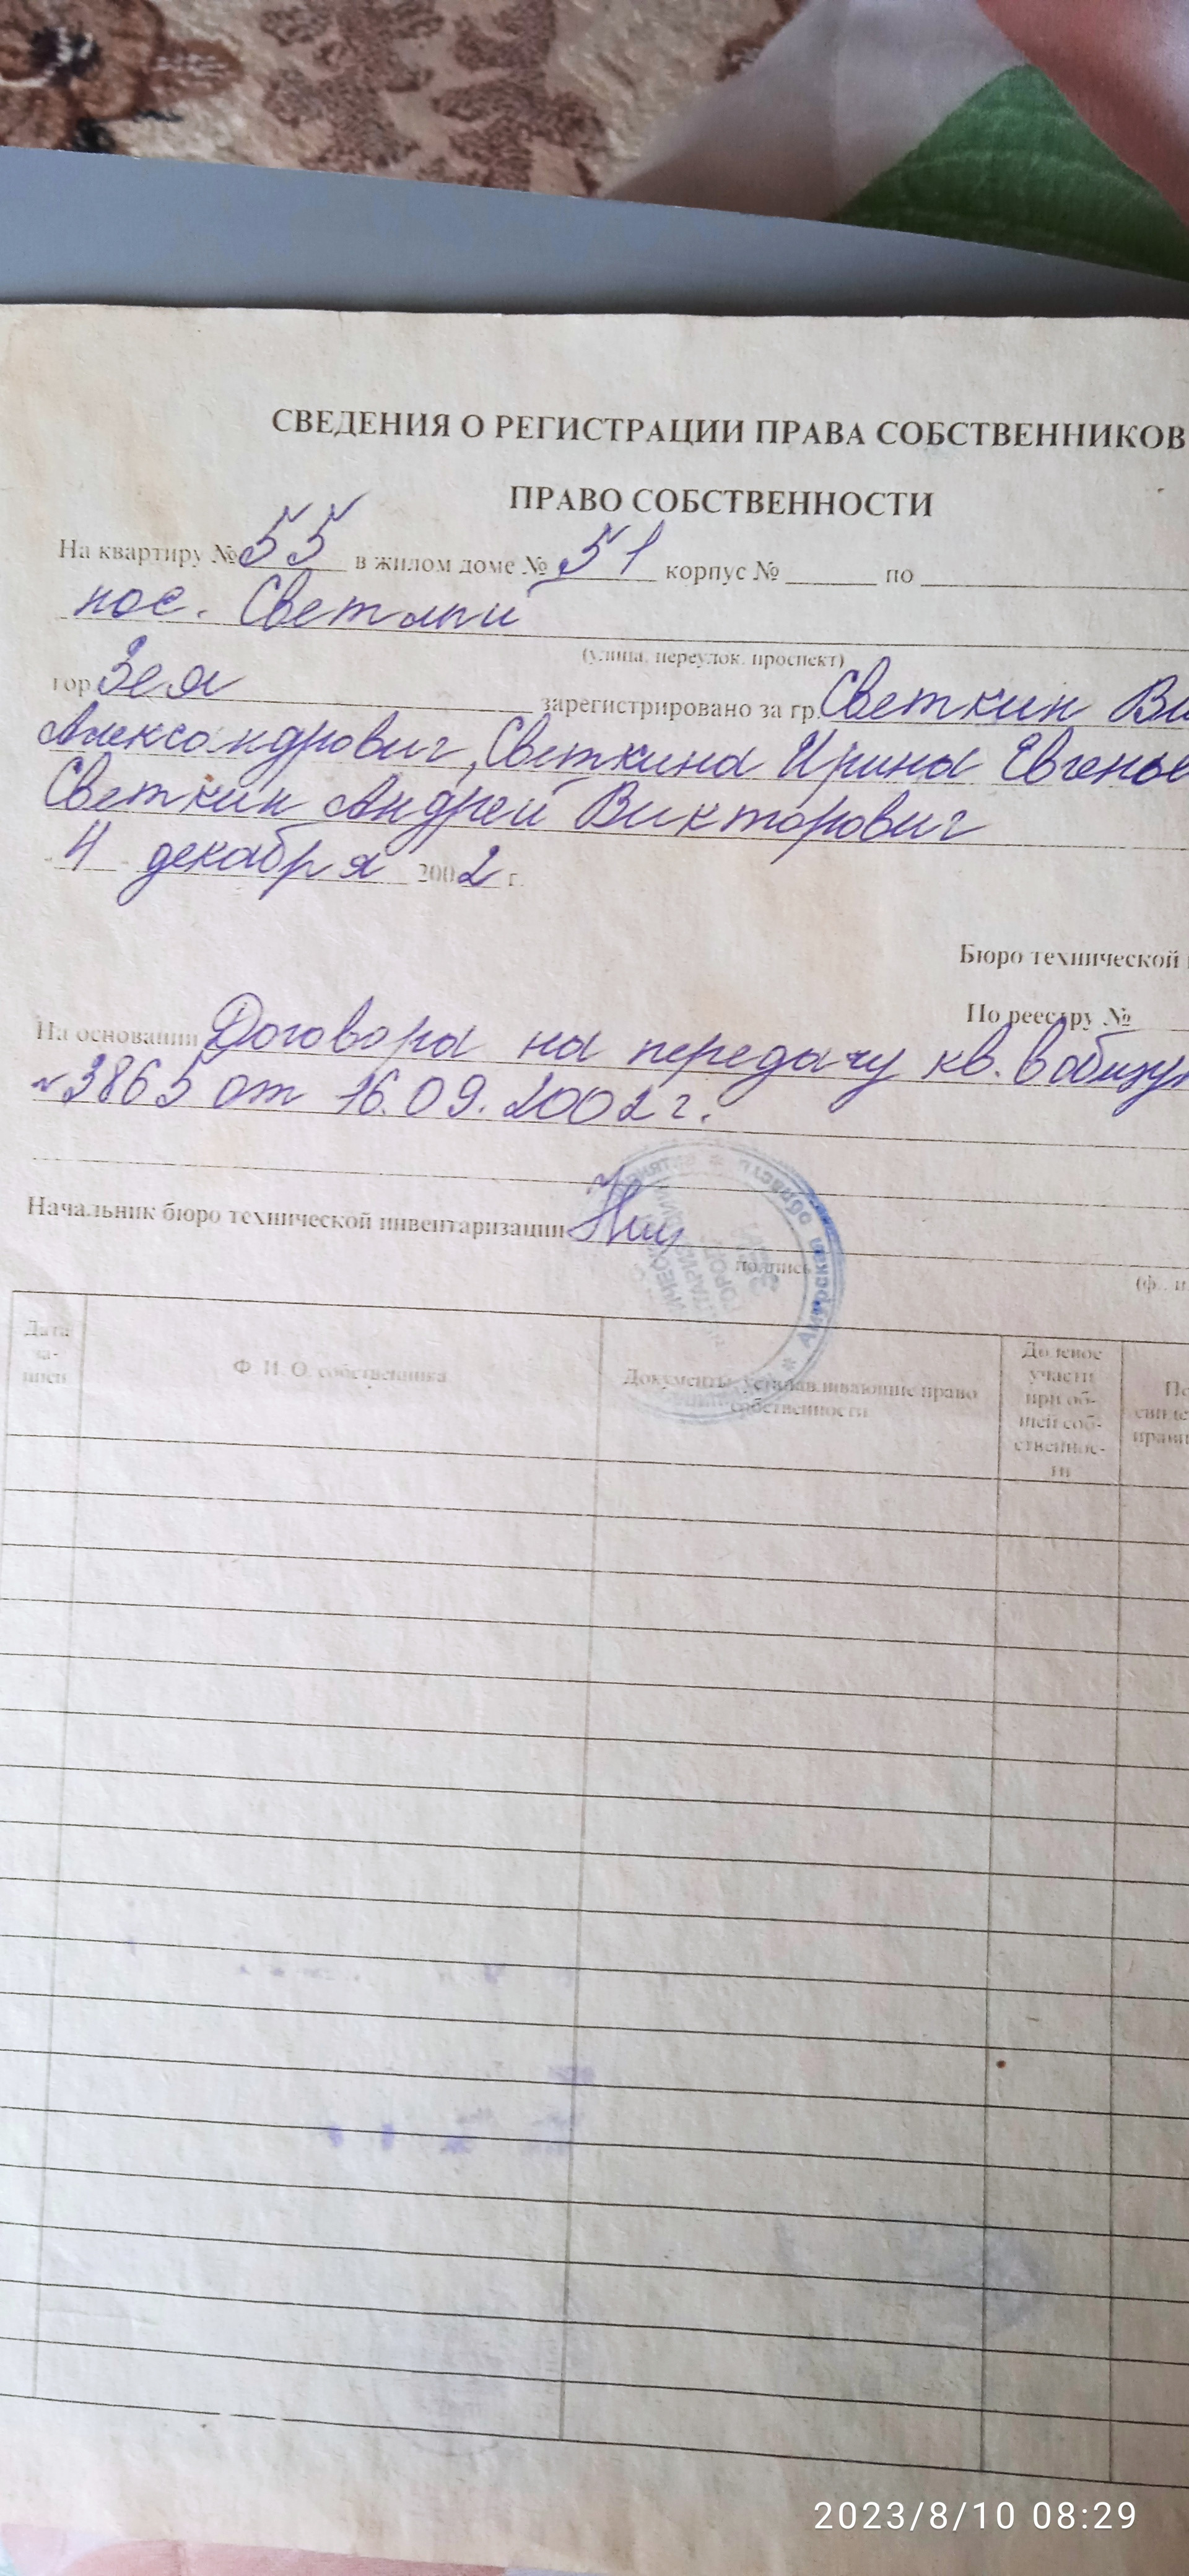 СВЕДЕНИЯ О РЕГИСТРАЦИИ ПРАВА СОБСТВЕННИКОВ
ПРАВО СОБСТВЕННОСТИ
На квартиру № 55 в жилом доме № 51 корпус № по
пос. Светлый
(улица, переулок, проспект)
гор. Зея зарегистрировано за гр. Светкин Ви
Александрович, Светкина Ирина Евгенье
Светкин Андрей Викторович
декабря 2002 г.
Бюро технической
По реестру №
На основании Договора на передачу кв. в общую
№3865 от 16.09.2002 г.
Начальник бюро технической инвентаризации
подпись
(ф., и.
Дата за-
писи
Ф. И. О. собственника
Документы, устанавливающие право
собственности
Долевое
участи
при об-
щей соб-
ственнос-
ти
Амурская область
2023/8/10 08:29